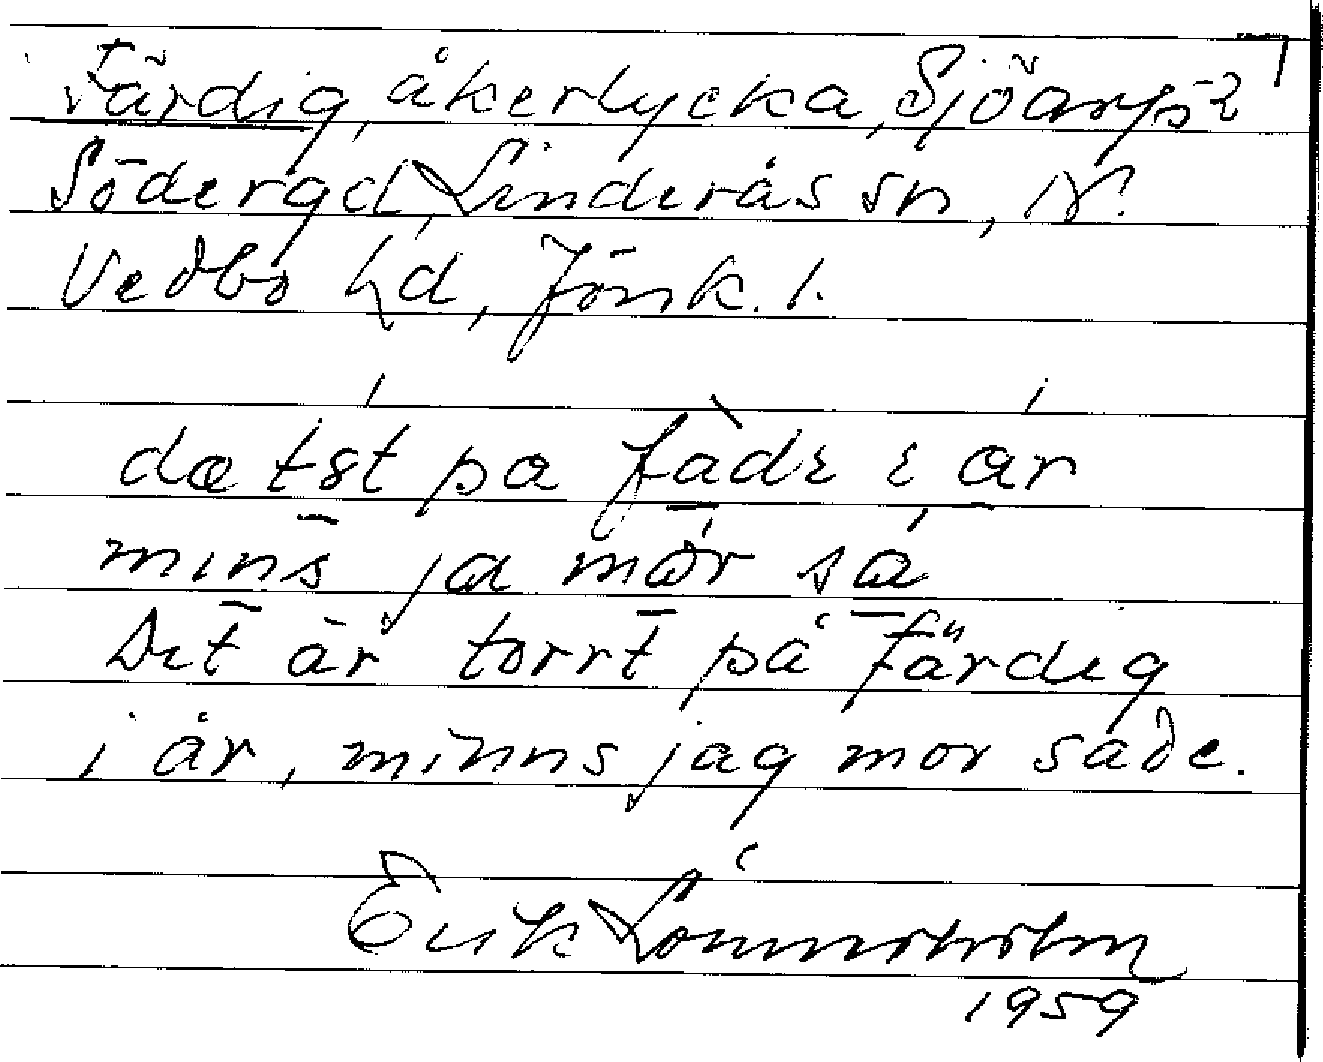 Färdig, åkerlycka, Sjöarps
Södergd, Linderås sn, N.
Vedbo hd, Jönk. l.
dæ tøt pa fàdɛ ɛ ar
mins ja mor sa
Det är torrt på Färdig
i år, minns jag mor sade.
Erik Lönnerholm
1959